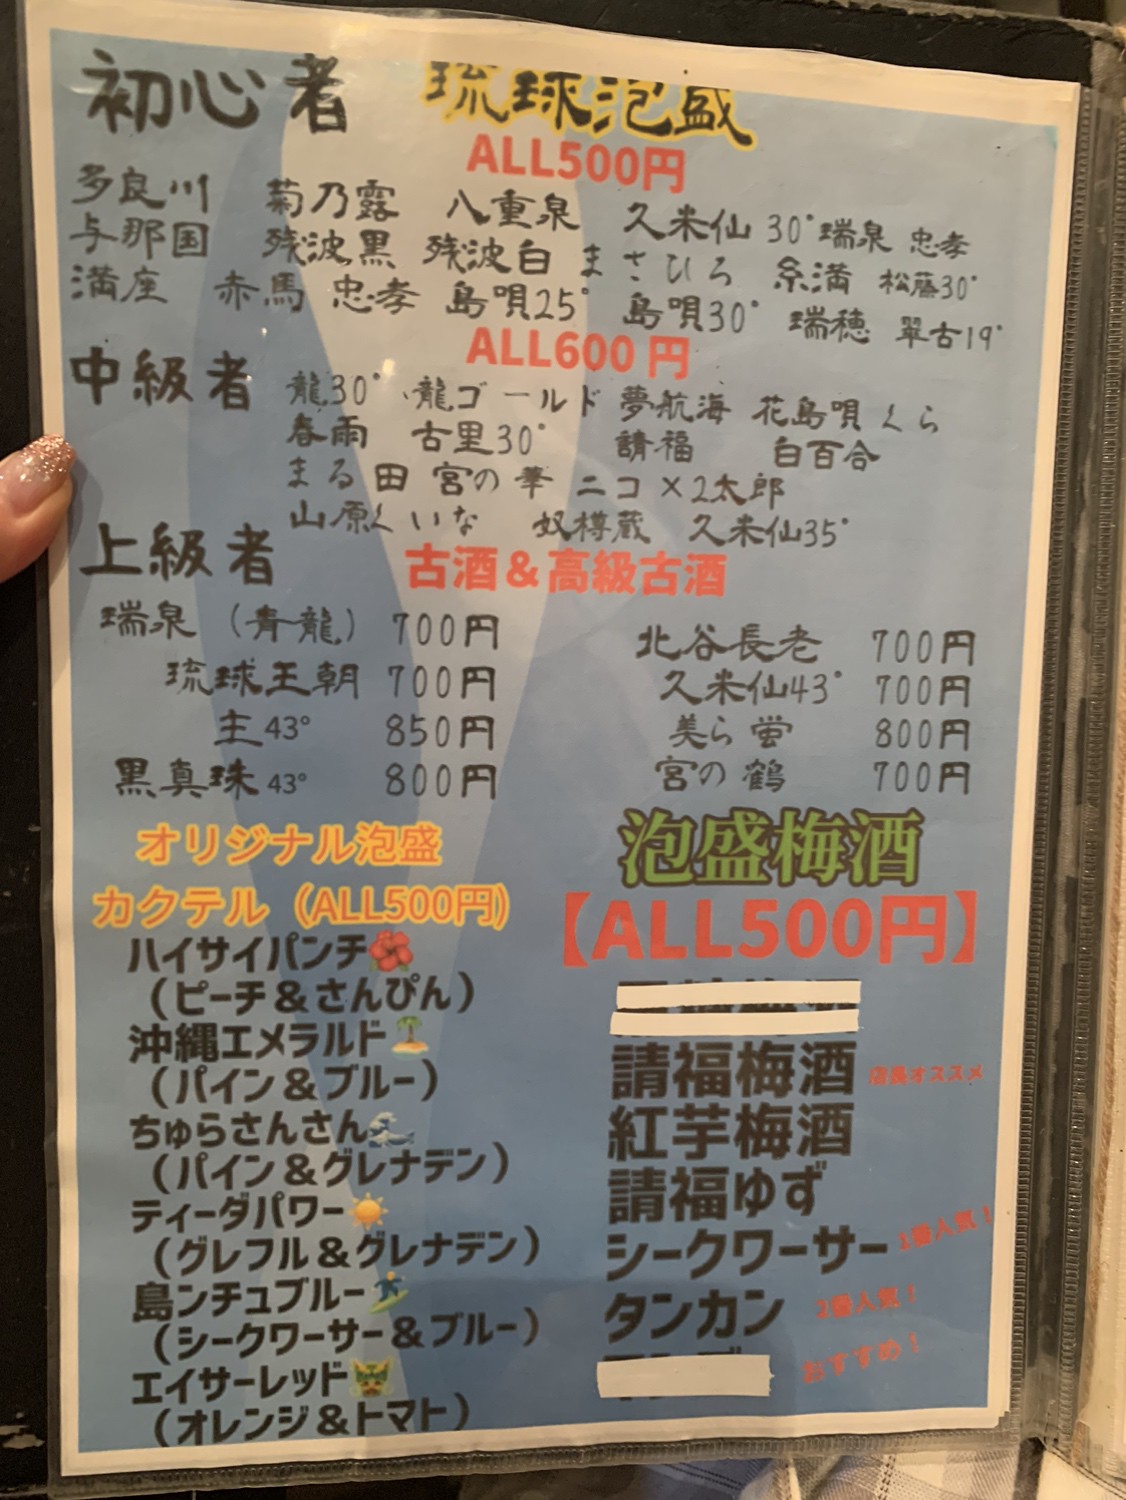 初心者 琉球泡盛
ALL500円
多良川 菊乃露 八重泉 久米仙30° 瑞泉 忠孝
与那国 残波黒 残波白 まさひろ 糸満 松藤30°
満座 赤馬 忠孝 島唄25° 島唄30° 瑞穂 翠古19°
ALL600円
中級者 龍30° 龍ゴールド 夢航海 花島唄 くら
春雨 古里30° 請福 白百合
まる田 宮の華 ニコ×2太郎
山原くいな 奴樽蔵 久米仙35°
上級者 古酒&高級古酒
瑞泉 (青龍) 700円
琉球王朝 700円
主43° 850円
黒真珠43° 800円
北谷長老 700円
久米仙43° 700円
美ら蛍 800円
宮の鶴 700円
オリジナル泡盛
カクテル (ALL500円)
ハイサイパンチ🌺
(ピーチ&さんぴん)
沖縄エメラルド🏝️
(パイン&ブルー)
ちゅらさんさん🌊
(パイン&グレナデン)
ティーダパワー☀️
(グレフル&グレナデン)
島ンチュブルー🏄
(シークワーサー&ブルー)
エイサーレッド
(オレンジ&トマト)
泡盛梅酒
【ALL500円】
請福梅酒 店長オススメ
紅芋梅酒
請福ゆず
シークワーサー 1番人気！
タンカン 2番人気！
おすすめ！